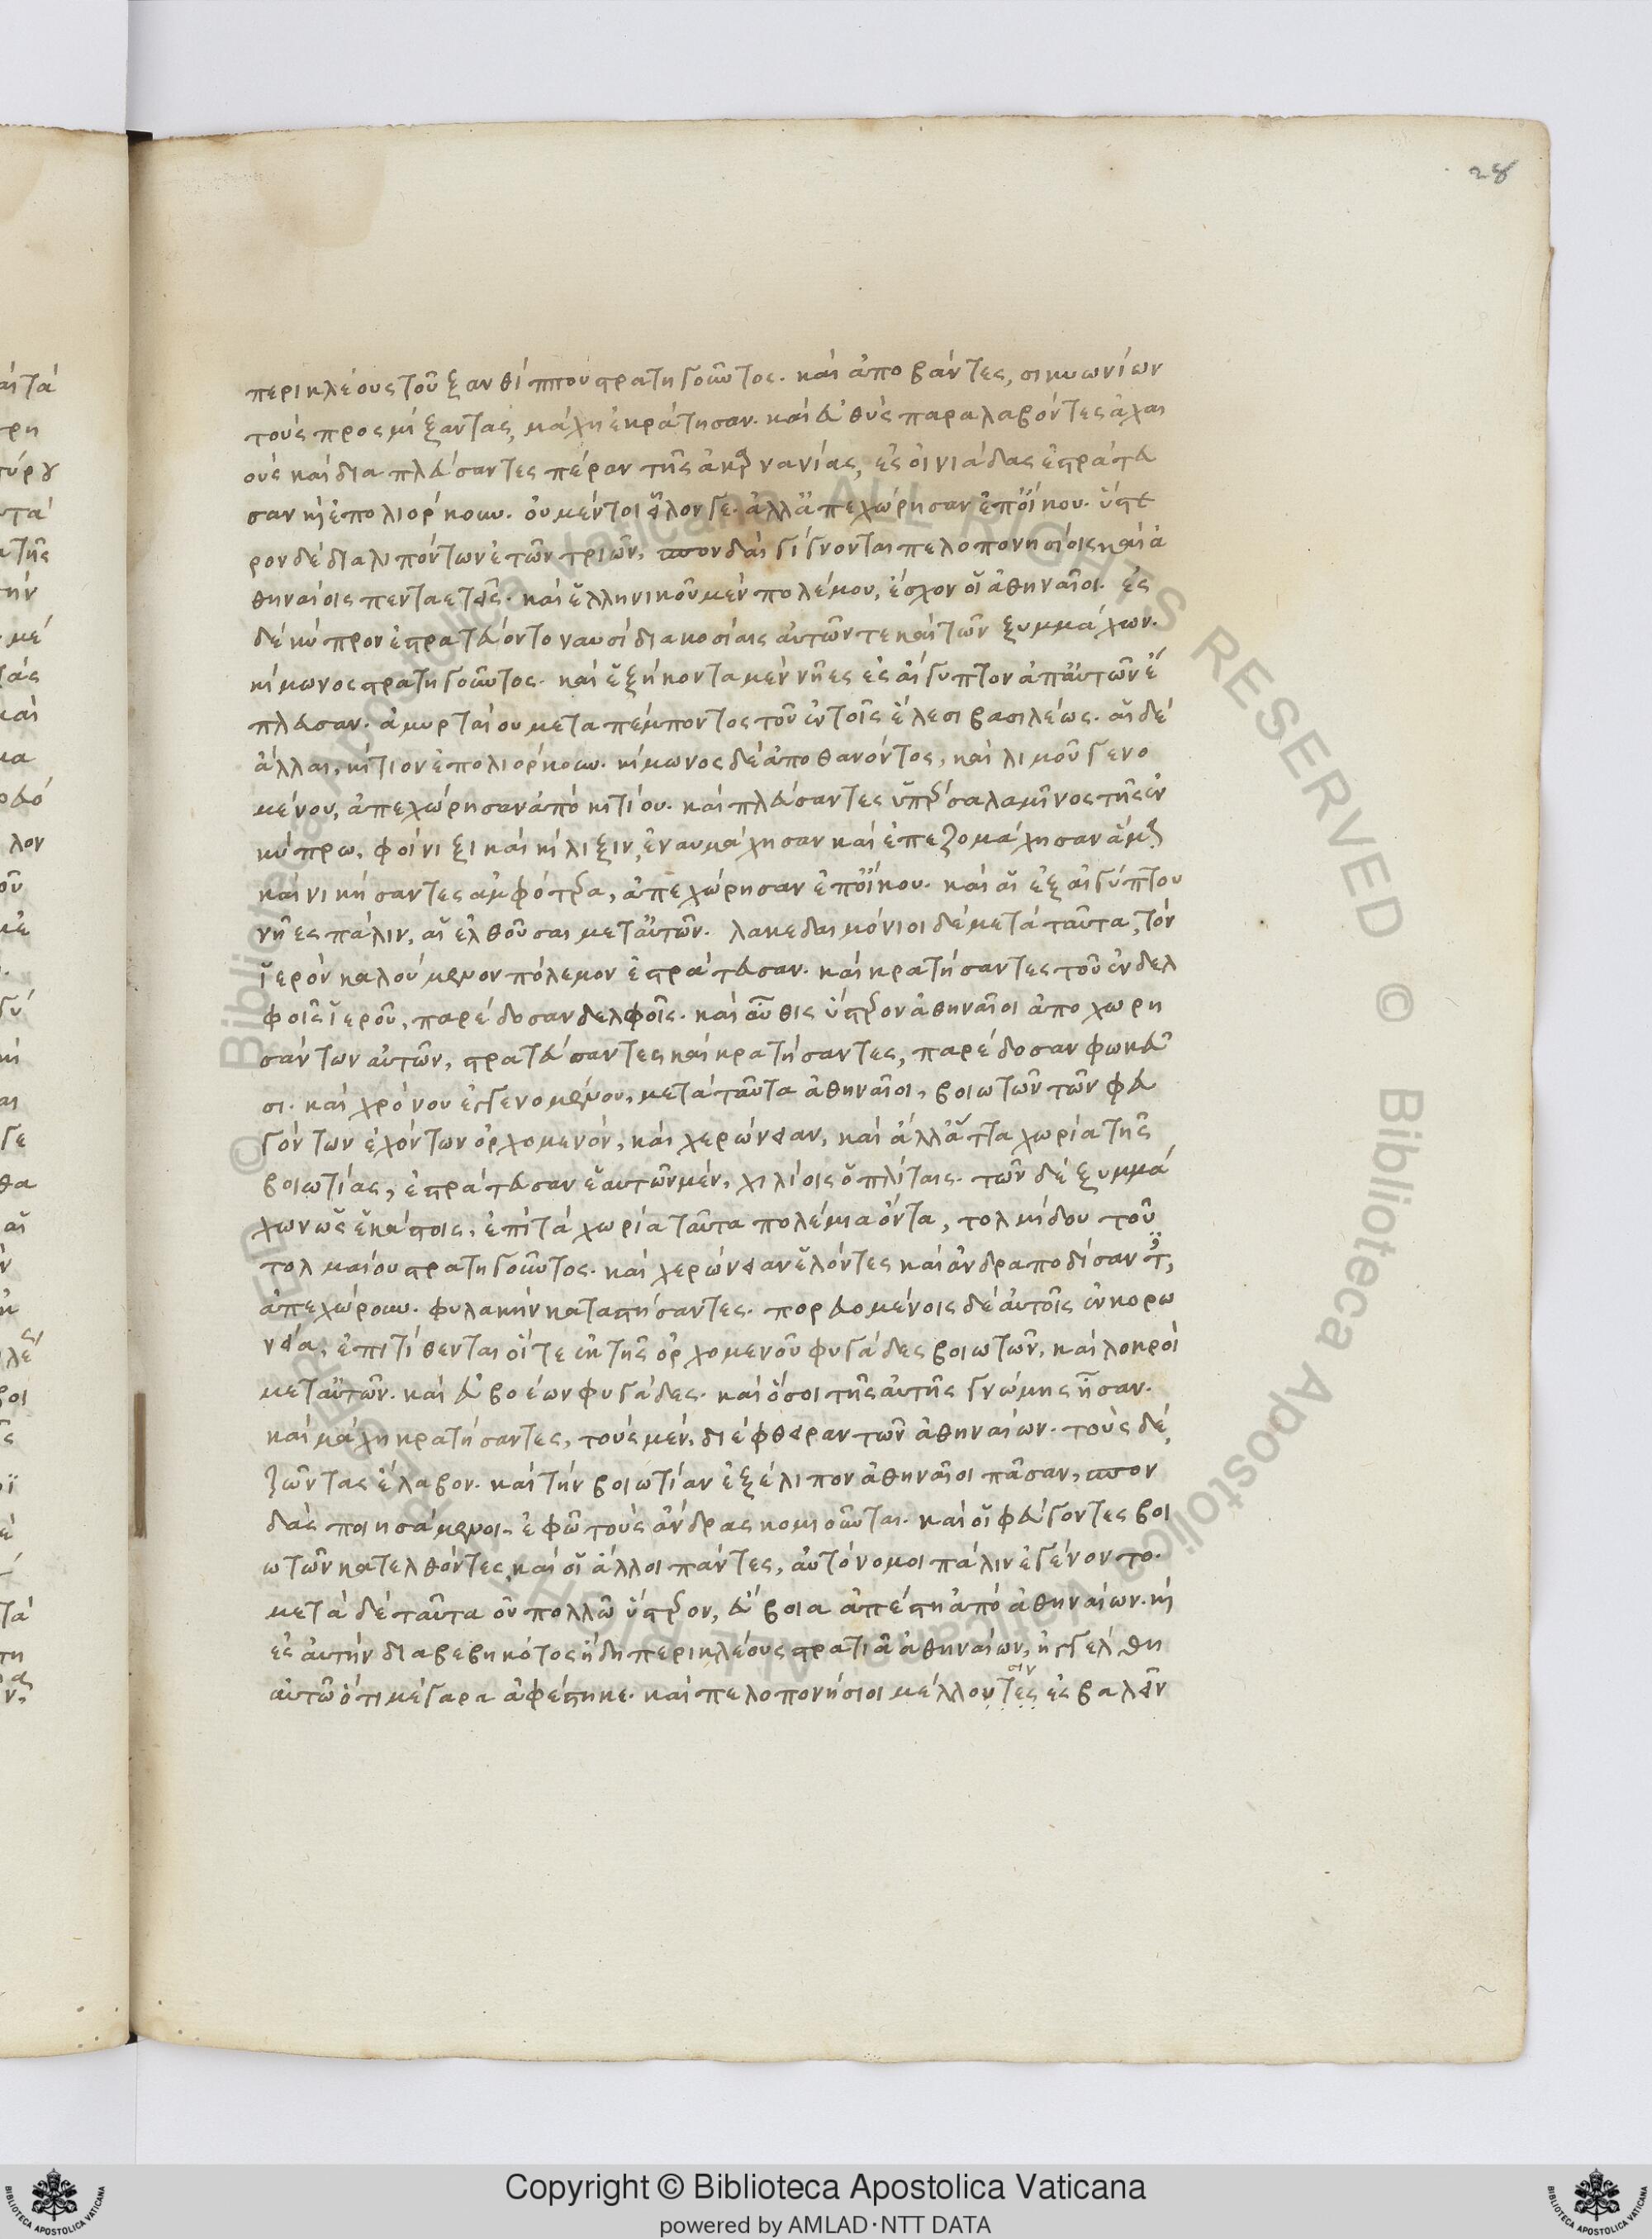 28
περικλέους τοῦ ξανθίππου στρατηγοῦντος. καὶ ἀποβάντες, σικυωνίων
τοὺς προσμίξαντας, μάχη ἐκράτησαν. καὶ εὐθὺς παραλαβόντες ἀχαι
οὺς καὶ διαπλεύσαντες πέραν τῆς ἀκρνανίας, ἐς οἰνιάδας ἐστράτευ
σαν κὶ ἐπολιόρκουν. οὐ μέντοι εἷλον γε. ἀλλ' ἀπεχώρησαν ἐπ' οἴκου. ὕστε
ρον δὲ διαλιπόντων ἐτῶν τριῶν, σπονδαὶ γίγνονται πελοπονησίοις καὶ ἀ
θηναίοις πενταετεῖς. καὶ ἑλληνικοῦ μὲν πολέμου, ἔσχον οἱ ἀθηναῖοι. ἐς
δὲ κύπρον ἐστρατεύοντο ναυσὶ διακοσίαις αὑτῶν τε καὶ τῶν ξυμμάχων.
κίμωνος στρατηγοῦντος. καὶ ἑξήκοντα μὲν νῆες ἐς αἴγυπτον ἀπ' αὐτῶν ἔ
πλευσαν. ἀμυρταίου μεταπέμποντος τοῦ ἐν τοῖς ἕλεσι βασιλέως. αἱ δὲ
ἄλλαι, κίτιον ἐπολιόρκουν. κίμωνος δὲ ἀποθανόντος, καὶ λιμοῦ γενο
μένου, ἀπεχώρησαν ἀπὸ κιτίου. καὶ πλεύσαντες ὑπὲρ σαλαμῖνος τῆς ἐν
κύπρω. φοίνιξι καὶ κίλιξιν, ἐναυμάχησαν καὶ ἐπεζομάχησαν ἅμα
καὶ νικήσαντες ἀμφότερα, ἀπεχώρησαν ἐπ' οἴκου. καὶ αἱ ἐξ αἰγύπτου
νῆες πάλιν, αἱ ἐλθοῦσαι μετ' αὐτῶν. λακεδαιμόνιοι δὲ μετὰ ταῦτα, τὸν
ἱερὸν καλούμενον πόλεμον ἐστράτευσαν. καὶ κρατήσαντες τοῦ ἐν δελ
φοῖς ἱεροῦ, παρέδοσαν δελφοῖς. καὶ αὖθις ὕστερον ἀθηναῖοι ἀποχωρη
σάντων αὐτῶν, στρατεύσαντες καὶ κρατήσαντες, παρέδοσαν φωκεῦ
σι. καὶ χρόνου ἐγγενομένου, μετὰ ταῦτα ἀθηναῖοι, βοιωτῶν τῶν φευ
γόντων ἐχόντων ὀρχομενόν, καὶ χερώνειαν, καὶ ἄλλ' ἄττα χωρία τῆς
βοιωτίας, ἐστράτευσαν ἑαυτῶν μὲν, χιλίοις ὁπλίταις. τῶν δὲ ξυμμά
χων ὡς ἑκάστοις, ἐπὶ τὰ χωρία ταῦτα πολέμια ὄντα, τολμίδου τοῦ
τολμαίου στρατηγοῦντος. καὶ χερώνειαν ἑλόντες καὶ ἀνδραποδίσαντες,
ἀπεχώρουν. φυλακὴν καταστήσαντες. πορευομένοις δὲ αὐτοῖς ἐν κορω
νεία, ἐπιτίθενται οἵ τε ἐκ τῆς ὀρχομενοῦ φυγάδες βοιωτῶν, καὶ λοκροὶ
μετ' αὐτῶν. καὶ εὐβοέων φυγάδες. καὶ ὅσοι τῆς αὐτῆς γνώμης ἦσαν.
καὶ μάχη κρατήσαντες, τοὺς μὲν, διέφθειραν τῶν ἀθηναίων. τοὺς δὲ,
ζῶντας ἔλαβον. καὶ τὴν βοιωτίαν ἐξέλιπον ἀθηναῖοι πᾶσαν, σπον
δὰς ποιησάμενοι. ἐφ' ᾧ τοὺς ἄνδρας κομιοῦνται. καὶ οἱ φεύγοντες βοι
ωτῶν κατελθόντες, καὶ οἱ ἄλλοι πάντες, αὐτόνομοι πάλιν ἐγένοντο.
μετὰ δὲ ταῦτα οὐ πολλῶ ὕστερον, εὔβοια ἀπέστη ἀπὸ ἀθηναίων. κὶ
ἐς αὐτὴν διαβεβηκότος ἤδη περικλέους στρατιᾶ ἀθηναίων, ἠγγέλθη
αὐτῶ ὅτι μέγαρα ἀφέστηκε. καὶ πελοπονήσιοι μέλλουντες ἐς βαλεῖν
Copyright © Biblioteca Apostolica Vaticana
powered by AMLAD·NTT DATA